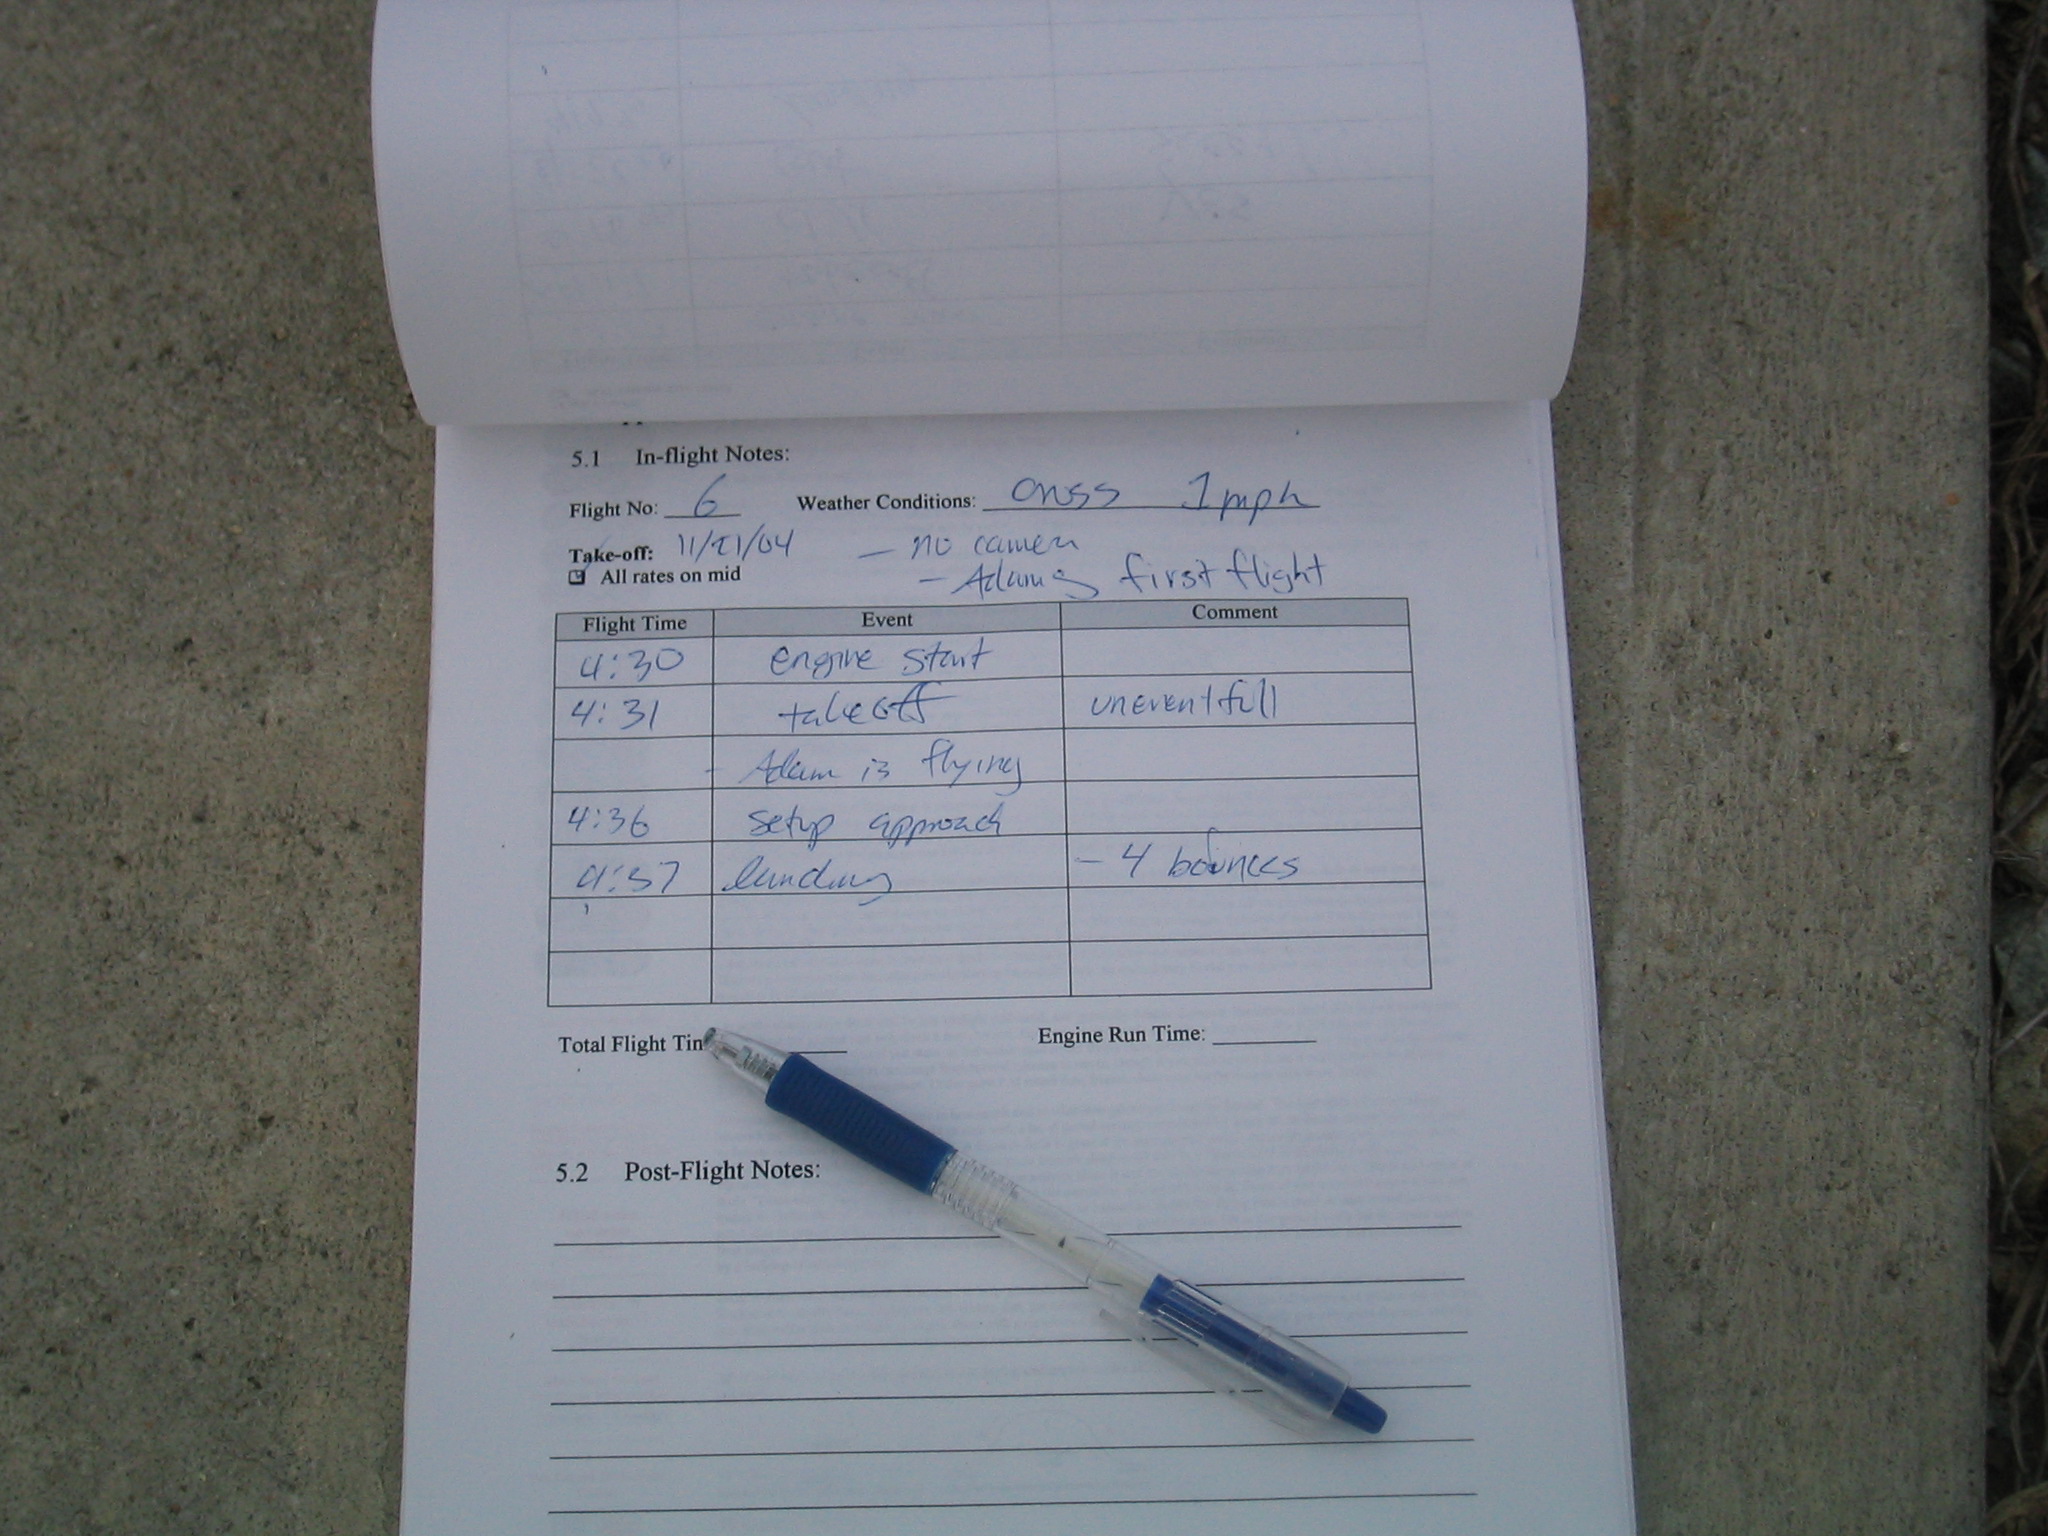 5.1 In-flight Notes:
Flight No: 6 Weather Conditions: cross 1 mph
Take-off: 11/21/04 - no camera
All rates on mid - Adams first flight
Flight Time Event Comment
4:30 engine start
4:31 takeoff uneventfull
- Adam is flying
4:36 setup approach
4:37 landing - 4 bounces
Total Flight Tim
Engine Run Time:
5.2 Post-Flight Notes: